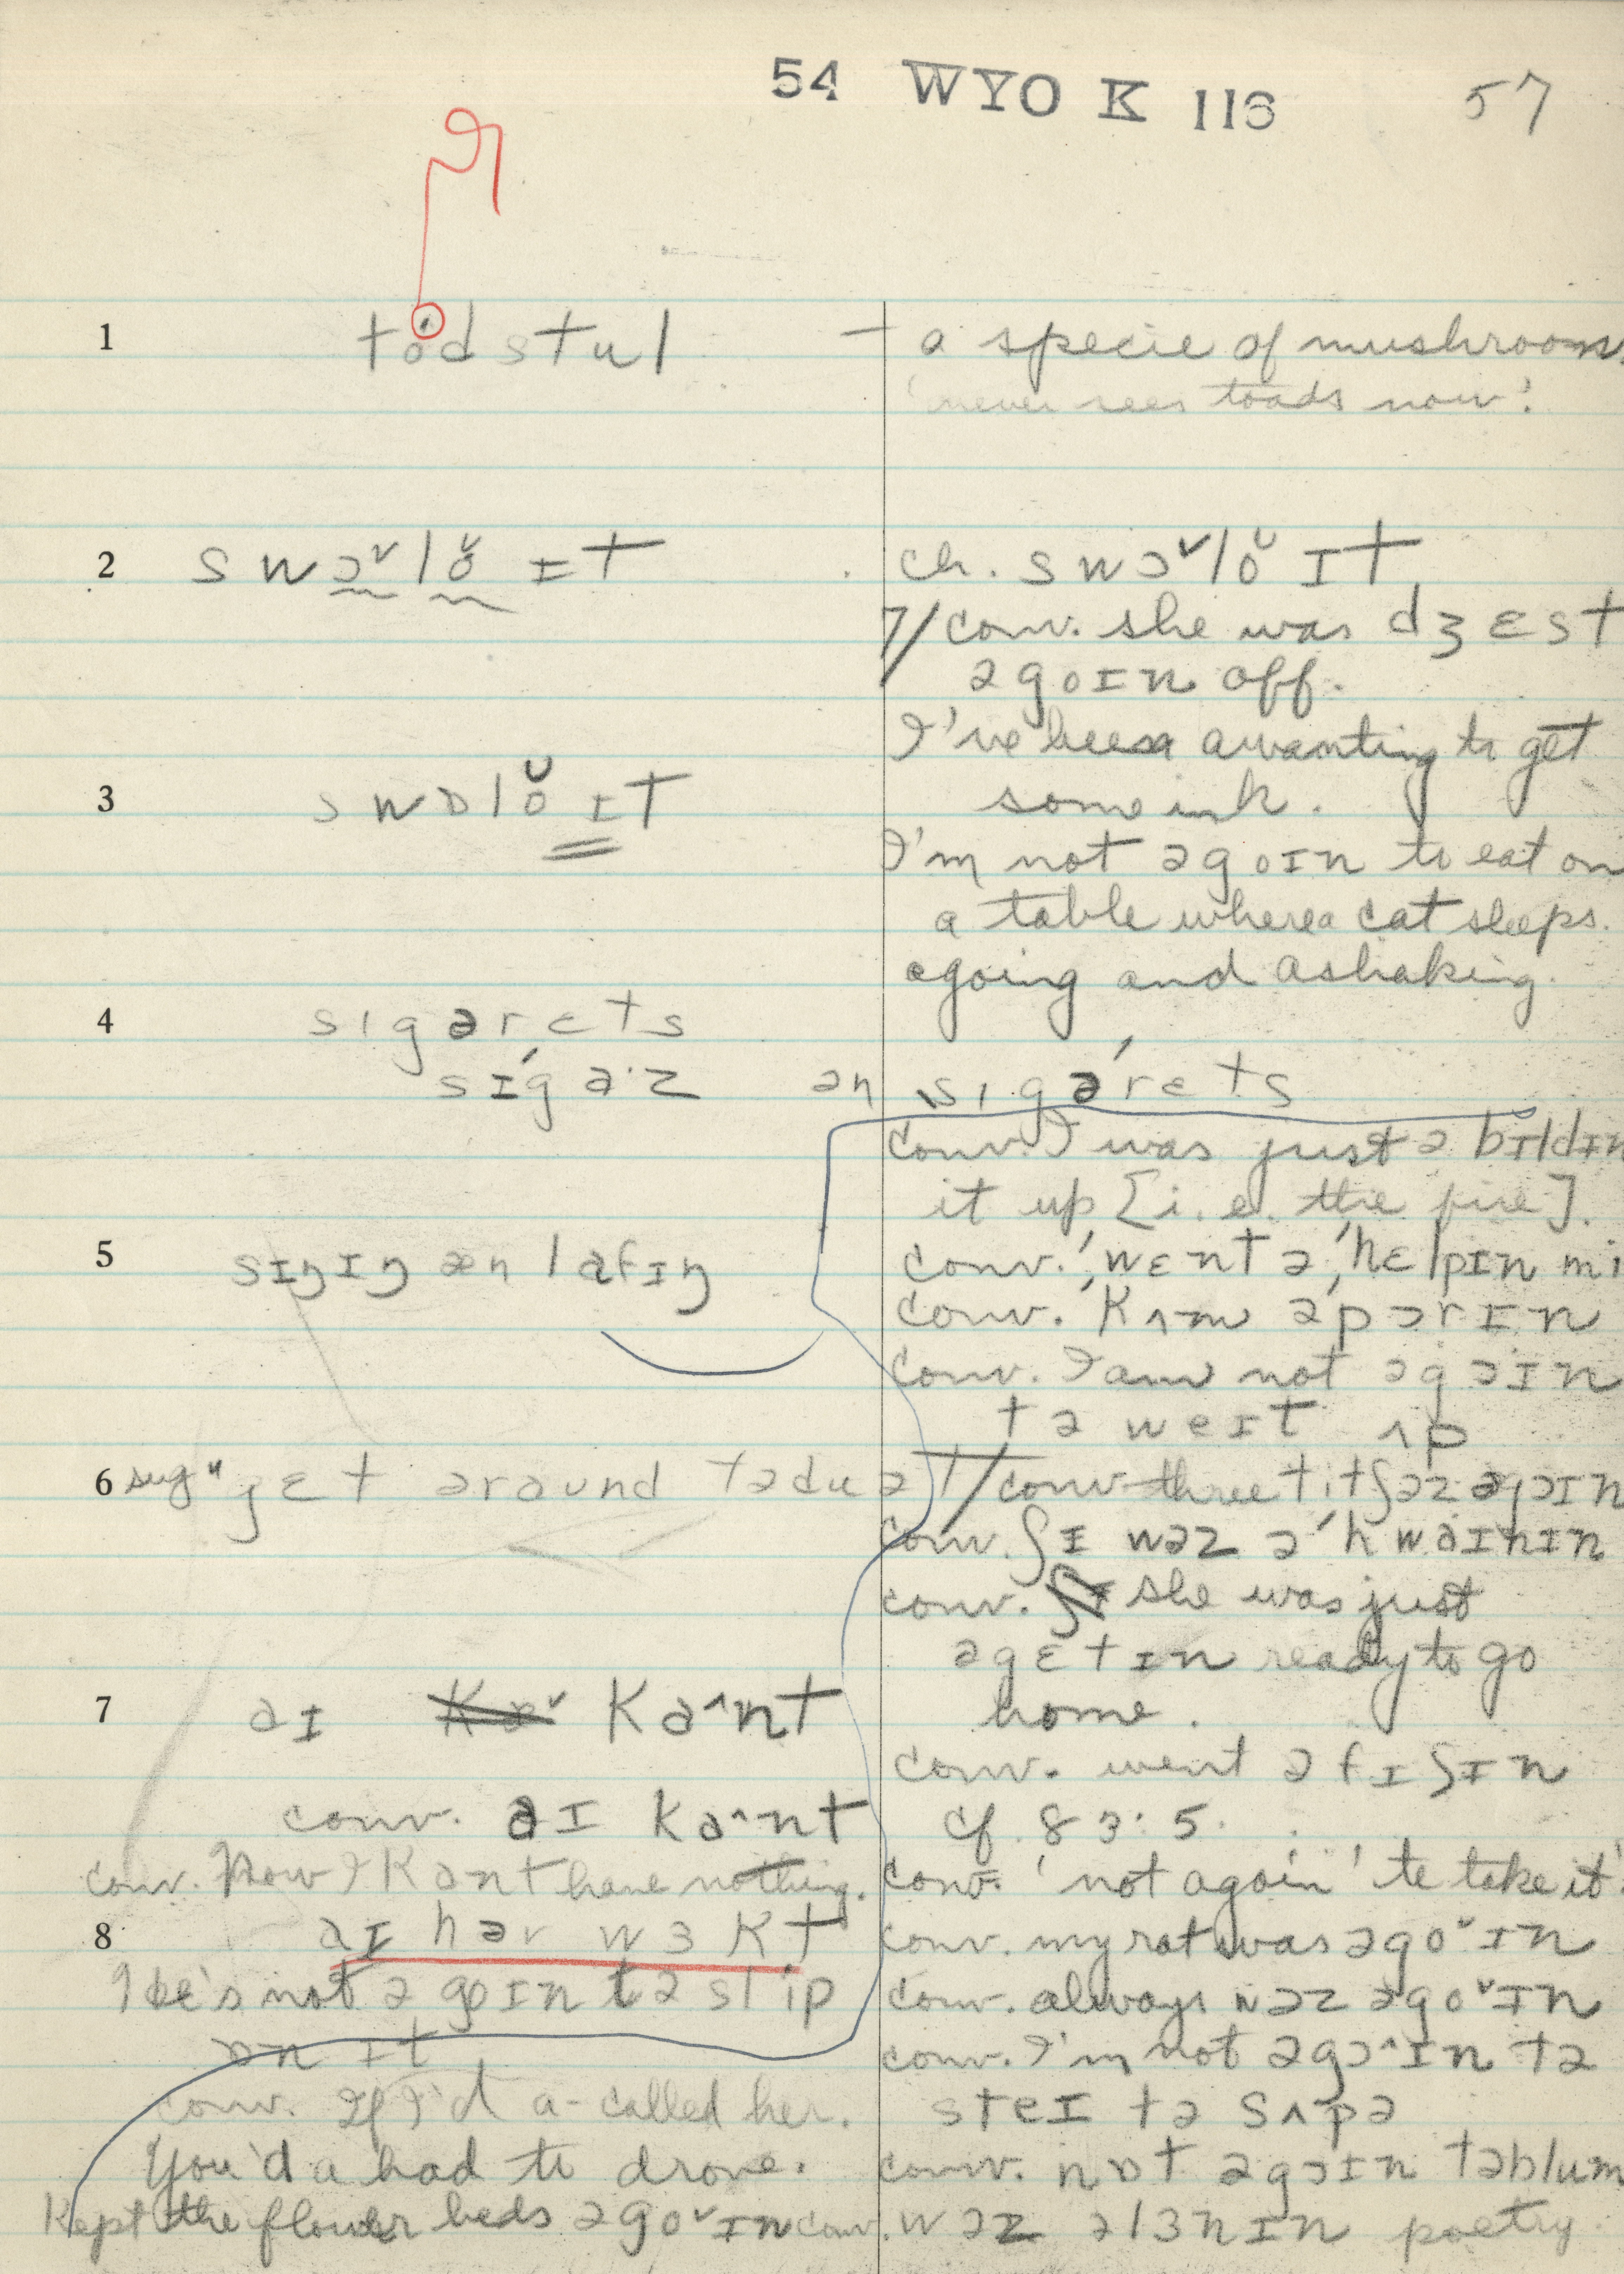 54 WYO K 116 57
1 todstul — a specie of mushroom.
'never sees toads now'.
2 swɔˇlŏ ɪt
ch. swɔˇlŏ ɪt
7/ conv. she was dʒɛst
əgoɪn off.
I've been awanting to get
some ink.
3 swɒlŏ ɪt
I'm not əgoɪn to eat on
a table where a cat sleeps.
agoing and ashaking.
4 sɪgərɛts
sɪ́gaˑz ən sɪgə́rɛts
conv. I was just ə bɪldɪn
it up [i.e. the fire].
5 sɪŋɪŋ æn lafɪŋ
conv. ˈwɛnt əˈhɛlpɪn mi
conv. ˈkʌm əpɔrɪn
conv. I am not əgɔɪn
tə weɪt ʌp
6 sug" gɛt əraund tədu ət
7/ conv three titʃəz əgɔɪn
conv. ʃɪ wəz əˈhwaɪnɪn
conv. she was just
əgɛtɪn ready to go
home.
7 aɪ kaˆnt
conv. went əfɪʃɪn
conv. aɪ kaˆnt
cf. 83:5.
conv. Now I kant have nothing.
conv. 'not agoin' to take it'.
8 aɪ hav wɜkt
conv. my rat was əgoˇɪn
He's not əgoɪn tə slip
ɒn ɪt
conv. always wəz əgoˇɪn
conv. I'm not əgɔˆɪn tə
conv. If I'd a-called her.
steɪ tə sʌpə
You'd a had to drove.
conv. nɒt əgɔɪn təblum
Kept the flower beds əgoˇɪn
conv. wəz əlɜnɪn poetry.